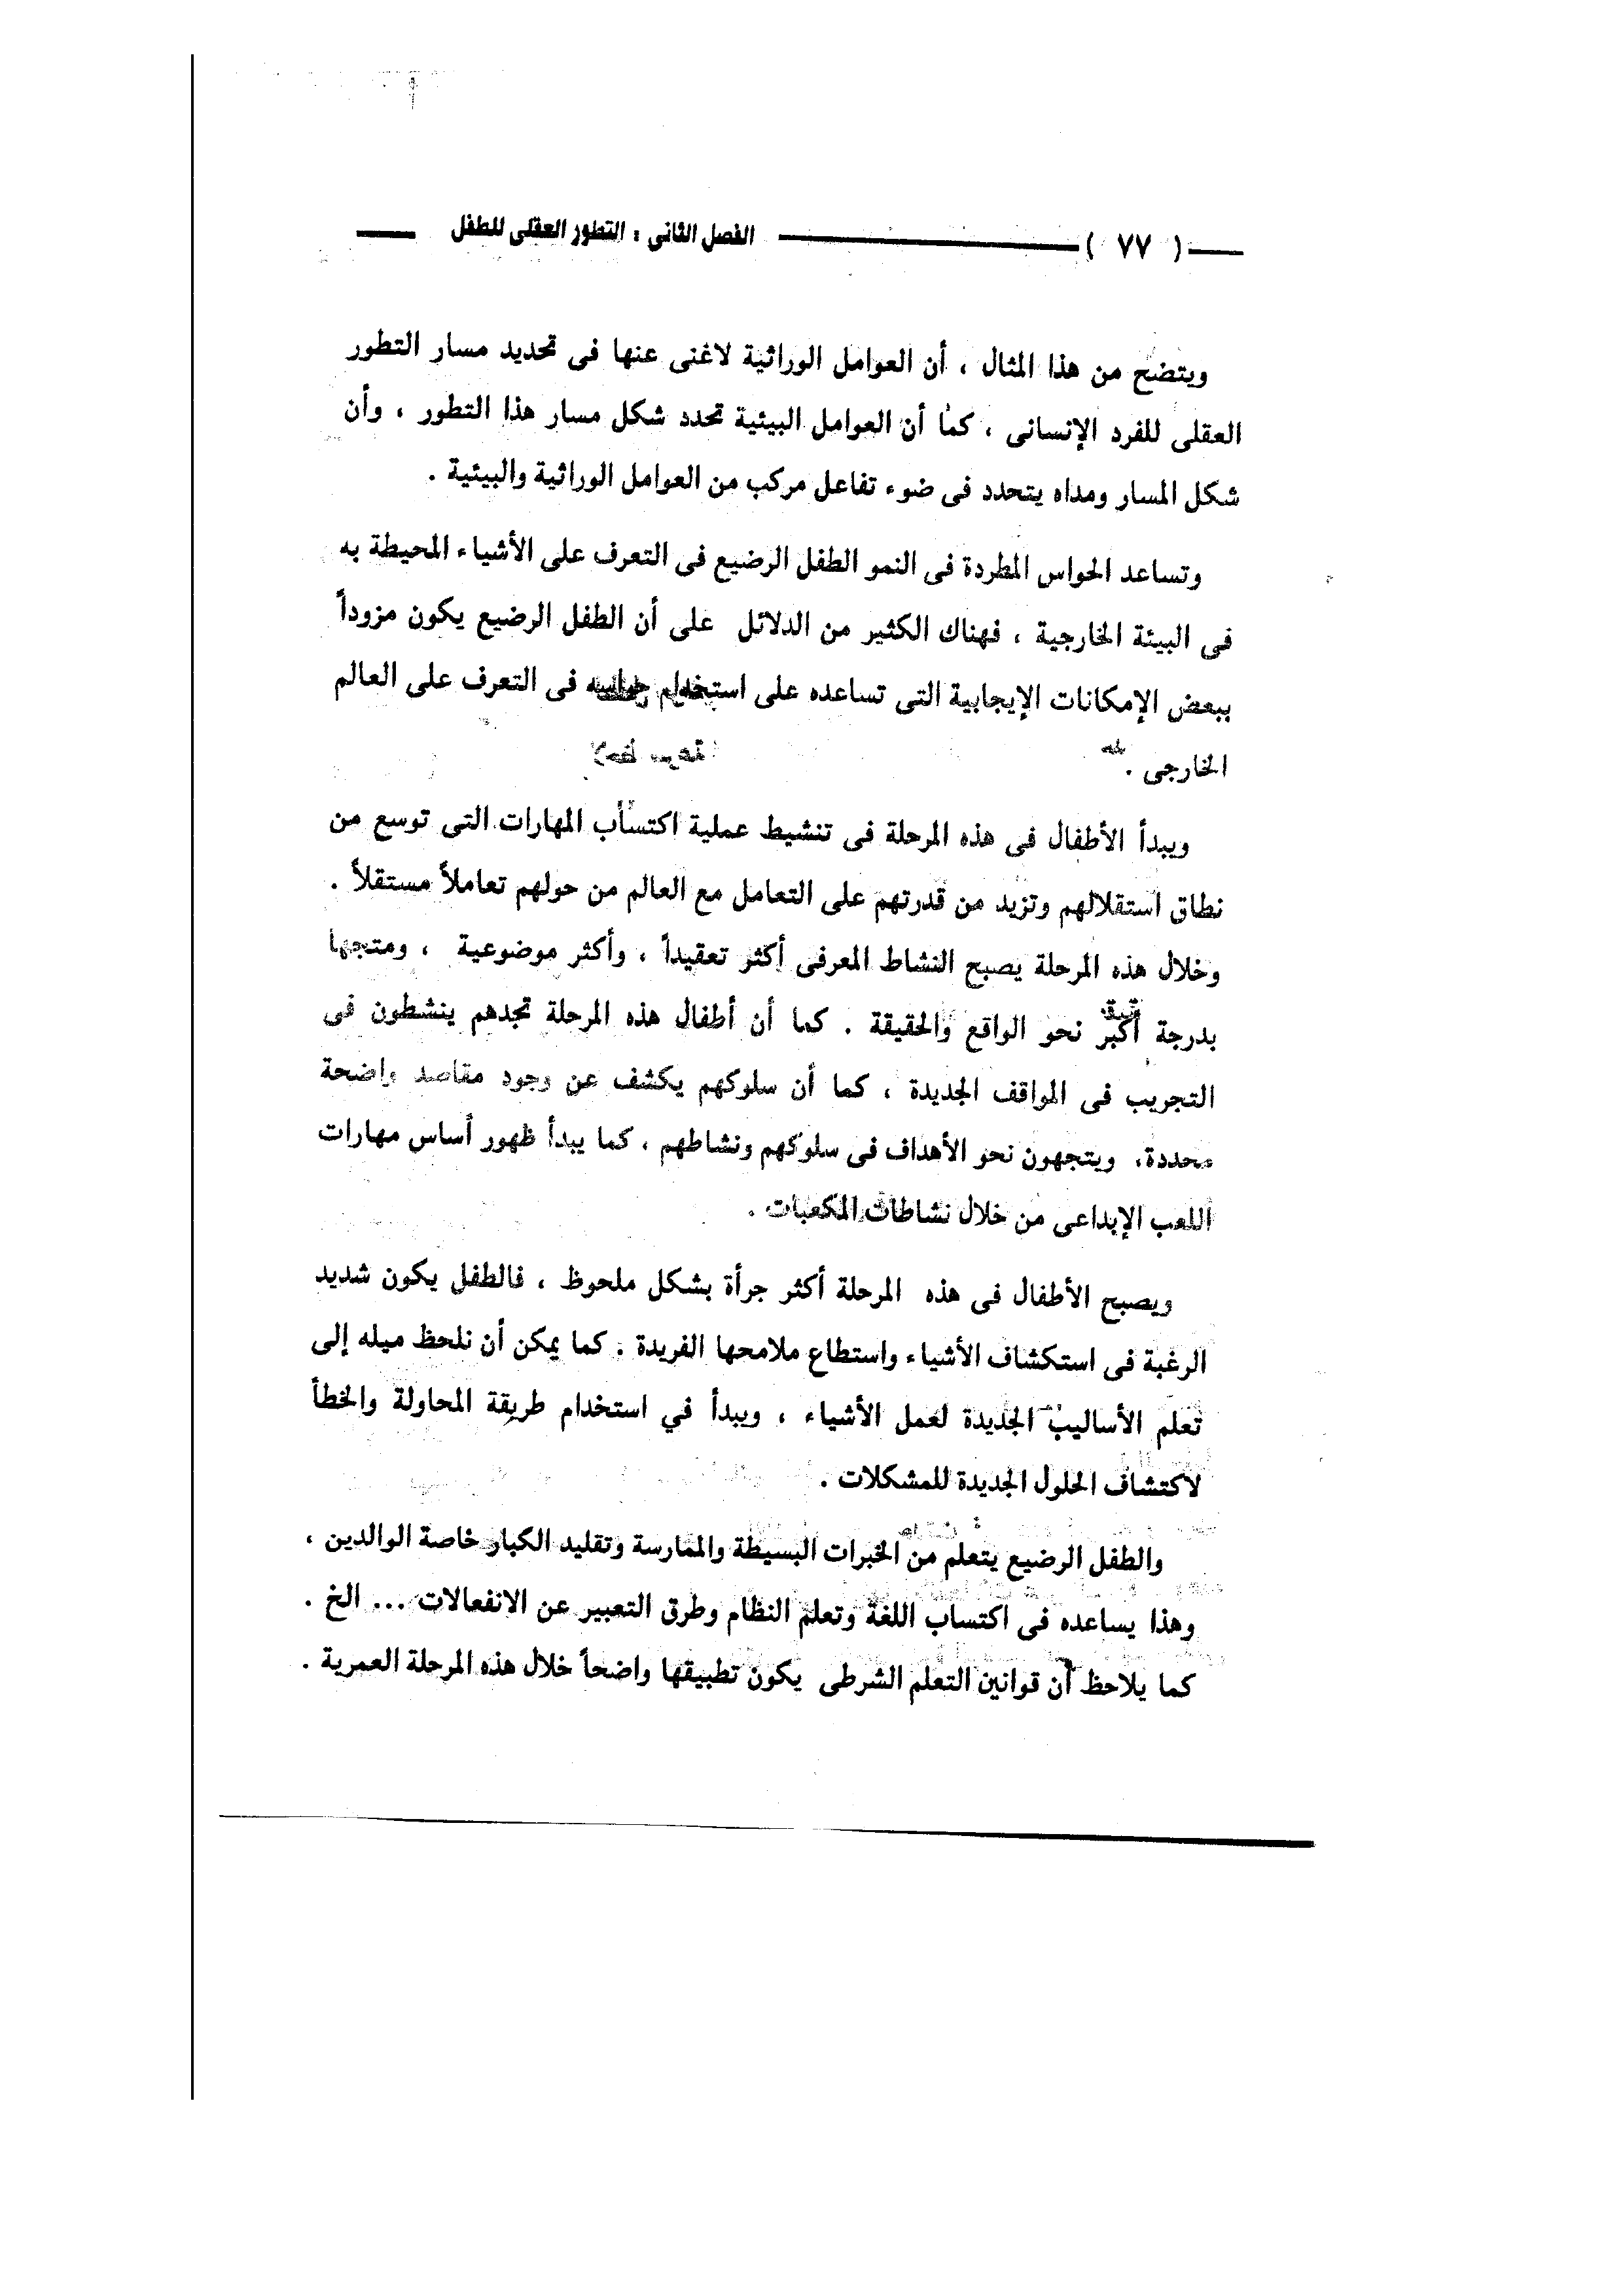 ( ٧٧ ) الفصل الثانى : التطور العقلى للطفل
ويتضح من هذا المثال ، أن العوامل الوراثية لاغنى عنها فى تحديد مسار التطور
العقلى للفرد الإنسانى ، كما أن العوامل البيئية تحدد شكل مسار هذا التطور ، وأن
شكل المسار ومداه يتحدد فى ضوء تفاعل مركب من العوامل الوراثية والبيئية .
وتساعد الحواس المطردة فى النمو الطفل الرضيع فى التعرف على الأشياء المحيطة به
فى البيئة الخارجية ، فهناك الكثير من الدلائل على أن الطفل الرضيع يكون مزوداً
ببعض الإمكانات الإيجابية التى تساعده على استخدام حواسه فى التعرف على العالم
الخارجى .
ويبدأ الأطفال فى هذه المرحلة فى تنشيط عملية اكتساب المهارات التى توسع من
نطاق استقلالهم وتزيد من قدرتهم على التعامل مع العالم من حولهم تعاملاً مستقلاً .
وخلال هذه المرحلة يصبح النشاط المعرفى أكثر تعقيداً ، وأكثر موضوعية ، ومتجها
بدرجة أكبر نحو الواقع والحقيقة . كما أن أطفال هذه المرحلة تجدهم ينشطون فى
التجريب فى المواقف الجديدة ، كما أن سلوكهم يكشف عن وجود مقاصد واضحة
محددة، ويتجهون نحو الأهداف فى سلوكهم ونشاطهم ، كما يبدأ ظهور أساس مهارات
اللعب الإبداعى من خلال نشاطات المكعبات .
ويصبح الأطفال فى هذه المرحلة أكثر جرأة بشكل ملحوظ ، فالطفل يكون شديد
الرغبة فى استكشاف الأشياء واستطاع ملامحها الفريدة . كما يمكن أن نلحظ ميله إلى
تعلم الأساليب الجديدة لعمل الأشياء ، ويبدأ في استخدام طريقة المحاولة والخطأ
لاكتشاف الحلول الجديدة للمشكلات .
والطفل الرضيع يتعلم من الخبرات البسيطة والممارسة وتقليد الكبار خاصة الوالدين ،
وهذا يساعده فى اكتساب اللغة وتعلم النظام وطرق التعبير عن الانفعالات ... الخ .
كما يلاحظ أن قوانين التعلم الشرطى يكون تطبيقها واضحاً خلال هذه المرحلة العمرية .